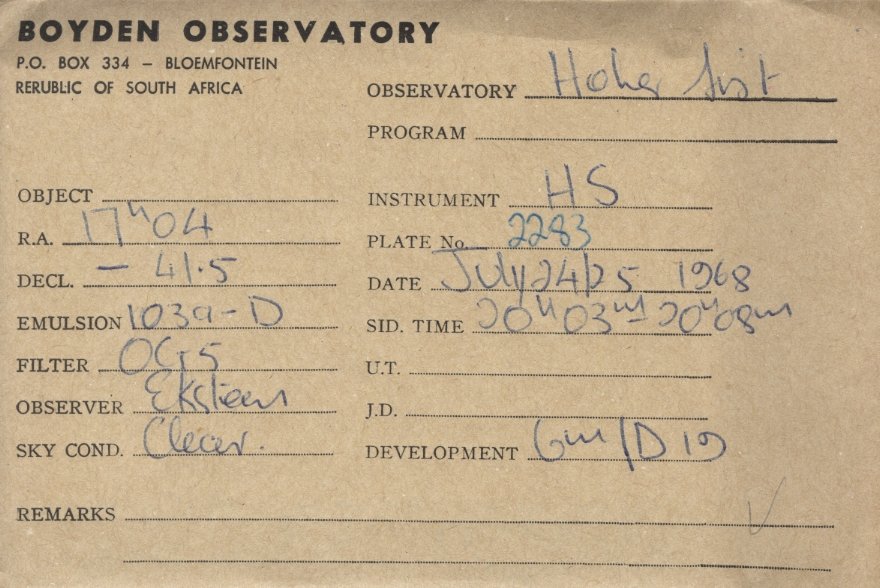 BOYDEN OBSERVATORY
P.O. BOX 334 – BLOEMFONTEIN
RERUBLIC OF SOUTH AFRICA
OBSERVATORY Hoher List
PROGRAM
OBJECT
R.A. 17h 04
DECL. – 41.5
EMULSION 103a-D
FILTER OG5
OBSERVER Eksteen
SKY COND. Clear.
INSTRUMENT HS
PLATE No. 2283
DATE July 24/25 1968
SID. TIME 20h 03m – 20h 08m
U.T.
J.D.
DEVELOPMENT 6m/D19
REMARKS